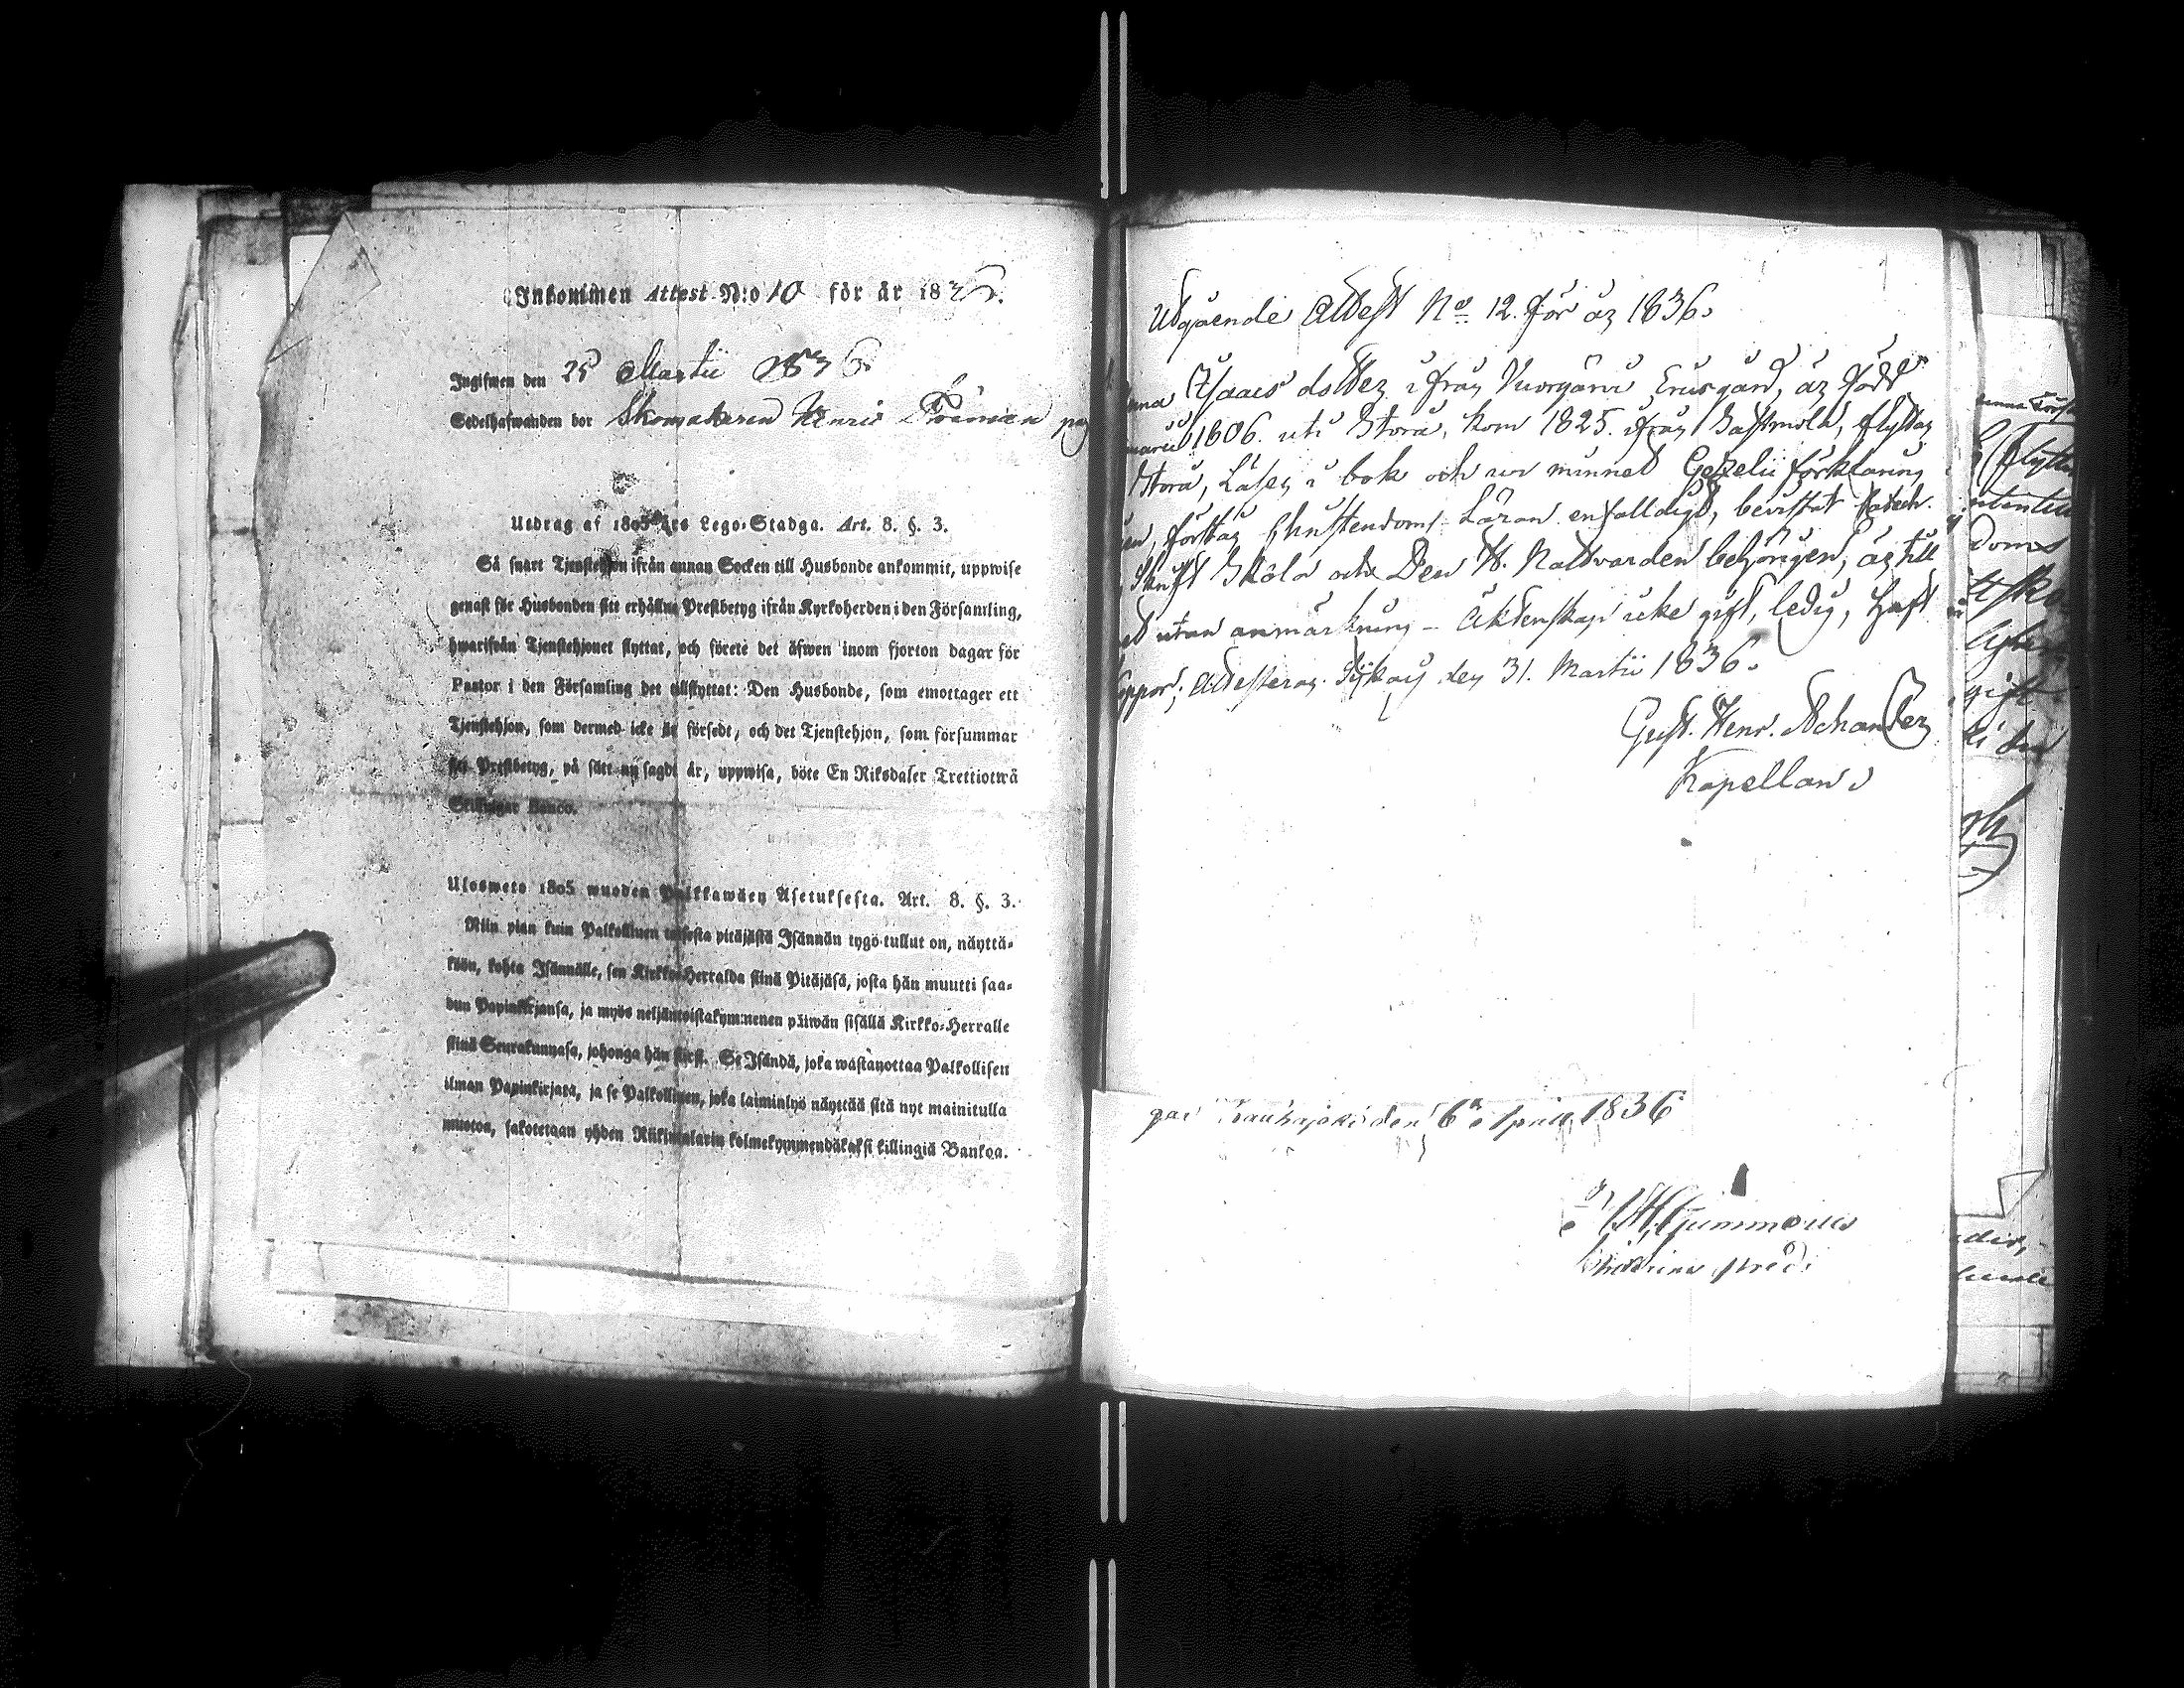 Inkommen Attest N:o 10 för år 1836.
Ingifwen den 25 Martii 1836.
Sedelhafwanden bor Skomakeren Henric Fröman på
Utdrag af 1805 års Lego-Stadga. Art. 8. §. 3.
Så snart Tjenstehjon ifrån annan Socken till Husbonde ankommit, uppwise
genast för Husbonden sitt erhållna Prestbetyg ifrån Kyrkoherden i den Församling,
hwarifrån Tjenstehjonet flyttat, och förete det äfwen inom fjorton dagar för
Pastor i den Församling det tillflyttat: Den Husbonde, som emottager ett
Tjenstehjon, som dermed icke är försedt, och det Tjenstehjon, som försummar
sitt Prestbetyg, på sätt nu sagdt är, uppwisa, böte En Riksdaler Trettiotwå
Skillingar Banco.
Ulosweto 1805 wuoden Palkkawäen Asetuksesta. Art. 8. §. 3.
Niin pian kuin Palkollinen toisesta pitäjästä Isännän tygö tullut on, näyttä-
köön, kohta Isännälle, sen Kirkko-Herralda siinä Pitäjäsä, josta hän muutti saa-
dun Papinkirjansa, ja myös neljäntoistakymmenen päiwän sisällä Kirkko-Herralle
siinä Seurakunnasa, johonga hän siirsi. Se Isändä, joka wastanottaa Palkollisen
ilman Papinkirjata, ja se Palkollinen, joka laiminlyö näyttää sitä nyt mainitulla
muotoa, sakotetaan yhden Riikintalarin kolmekymmendäkaksi killingiä Bankoa.
Utgående Attest No 12. för år 1836.
Isaacs dotter ifrån Vuorijärvi Erusgård, är född
1806. uti Storå, kom 1825. ifrån Sastmola, flyttar
Storå, Läser i bok och ur minnet Gezelii förklaring
förstår Christendoms Läran enfaldigt, bevistat Katech.
Skrift Skola och Den H. Nattvarden behörigen, är till
utan anmärkning - Äktenskap icke gift, ledig, haft
koppor; Attesterar Sijkais den 31. Martii 1836.
Gust. Henr. Schander
Kapellan
Kauhajoki den 6 April 1836
Gummerus
pred.
Flytta
Doms
gift